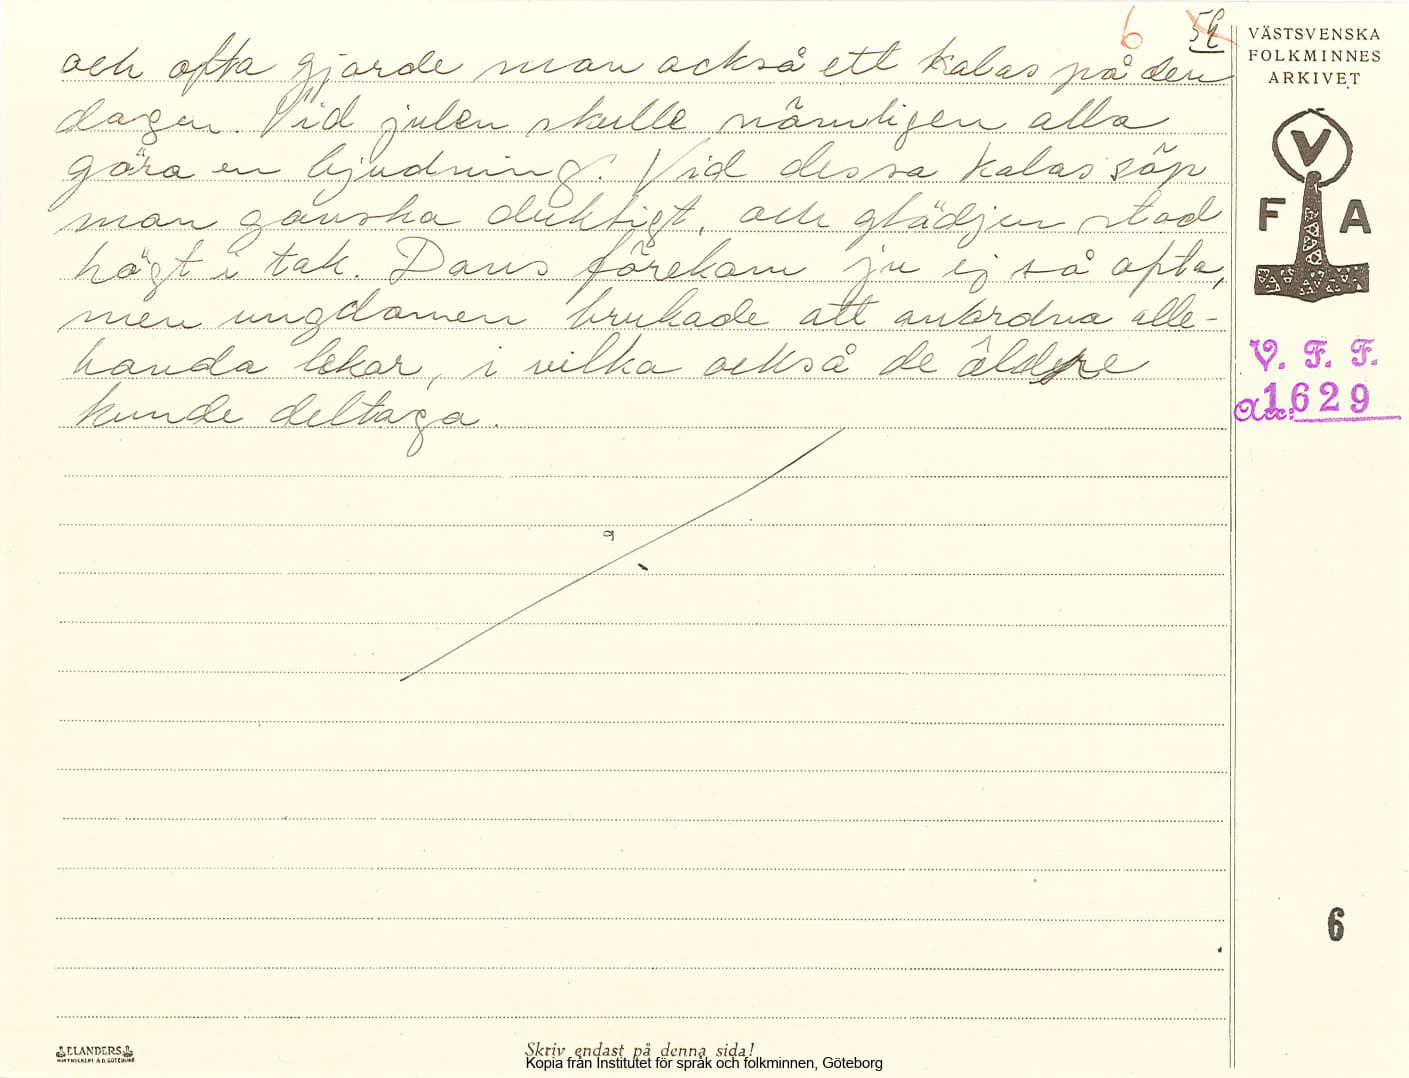 6 5
och ofta gjorde man också ett kalas på den
dagen. Vid julen skulle nämligen alla
göra en bjudning. Vid dessa kalas söp
man ganska duktigt, och glädjen stod
högt i tak. Dans förekom ju ej så ofta,
men ungdomen brukade att anordna alle-
handa lekar, i vilka också de äldre
kunde deltaga.
VÄSTSVENSKA
FOLKMINNES
ARKIVET
V
F A
V. F. F.
Acc: 1629
6
ELANDERS
Skriv endast på denna sida!
Kopia från Institutet för språk och folkminnen, Göteborg